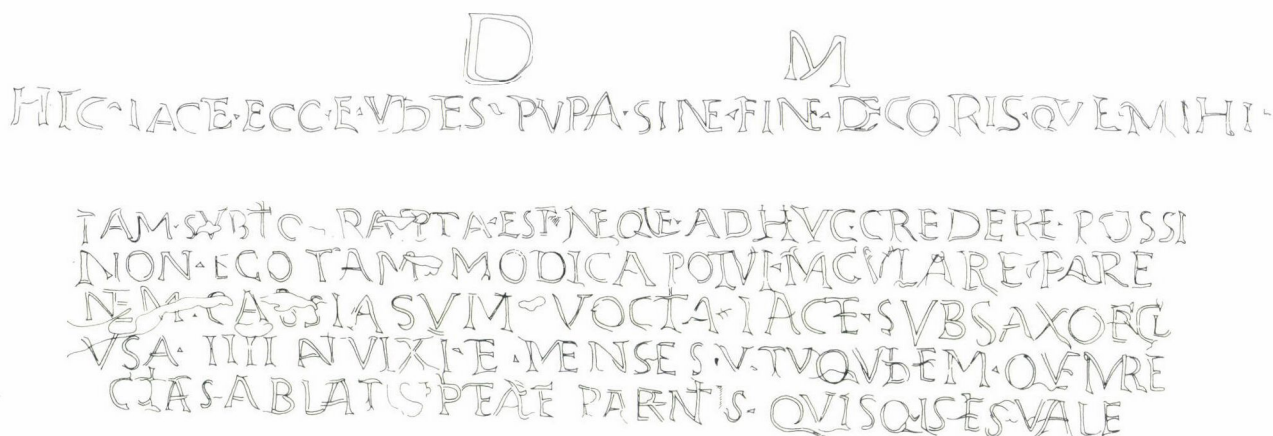 D M
HIC·IACE·ECCE·VDES·PVPA·SINE·FINE·DECORIS·QVE·MIHI·
TAM·SVBTO·RAPTA·EST·NEQVE·ADHVC·CREDERE·POSSI
NON·EGO TAM·MODICA POTVI·MACVLARE·PARE
CASSIA SVM·VOCTA·IACE·SVB SAXO
VSA·IIII AN VIXI·E·MENSES·V·TVQVDEM·QVEM RE
CIAS·ABLATIS PARENTIS·QVISQVIS ES·VALE